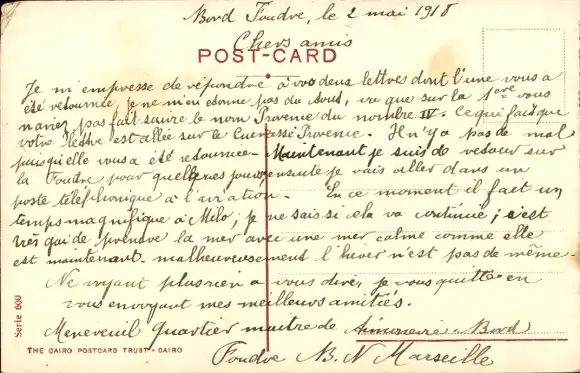 Bord Foudre, le 2 mai 1918
Chers amis
POST-CARD
Je m'empresse de répondre à vos deux lettres dont l'une vous a
été retournée, je ne m'en etonne pas du tout, vu que sur la 1ère vous
n'aviez pas fait suivre le nom Provence du nombre IV. Ce qui fait que
votre lettre est allée sur le Cuirassé Provence. Il n'y a pas de mal
puisqu'elle vous a été retournée. Maintenant je suis de retour sur
la Foudre pour quelques jours, ensuite je vais aller dans un
poste téléphonique à l'aviation. En ce moment il fait un
temps magnifique à Milo, je ne sais si cela va continuer; c'est
très gai de prendre la mer avec une mer calme comme elle
est maintenant. malheureusement l'hiver n'est pas de même.
Ne voyant plus rien a vous dire, je vous quitte en
vous envoyant mes meilleurs amitiés.
Quartier maitre de Bord
Foudre B. N Marseille
Serie 600
THE CAIRO POSTCARD TRUST-CAIRO